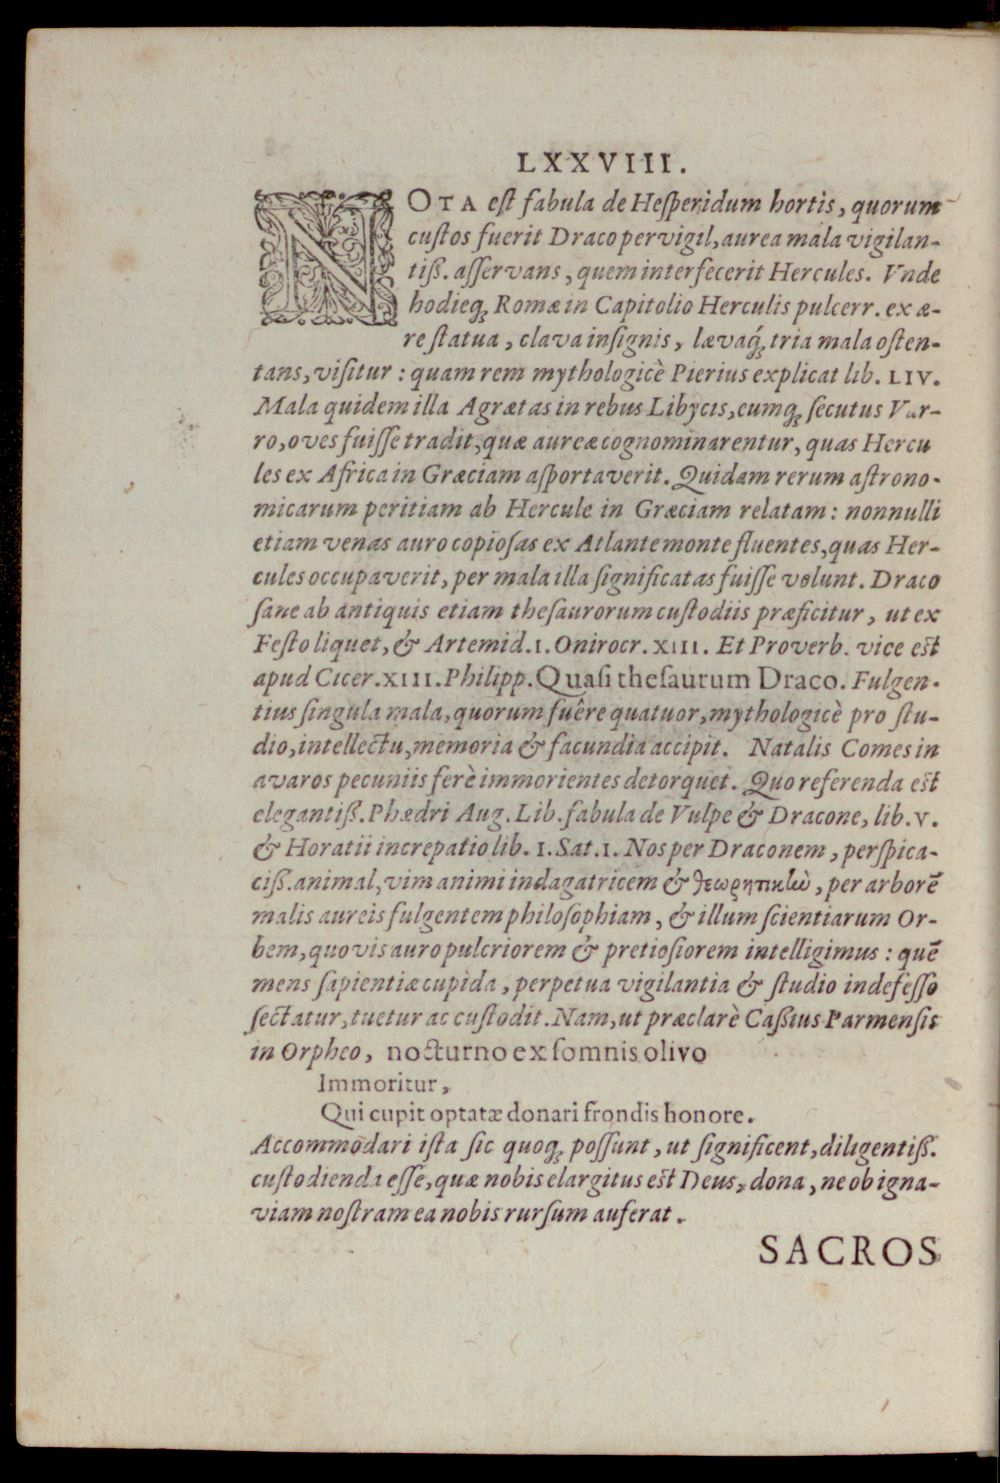 LXXVIII.
NOTA eſt fabula de Heſperidum hortis, quorum
cuſtos fuerit Draco pervigil, aurea mala vigilan-
tiß. aſſervans, quem interfecerit Hercules. Vnde
hodieq́ꝫ Romæ in Capitolio Herculis pulcerr. ex æ-
re ſtatua, clava inſignis, lævaq́ꝫ tria mala oſten-
tans, viſitur: quam rem mythologicè Pierius explicat lib. LIV.
Mala quidem illa Agrætas in rebus Libycis, eumqꝫ ſecutus Var-
ro, oves fuiſſe tradit, quæ aureæ cognominarentur, quas Hercu
les ex Africa in Græciam aſportaverit. Quidam rerum aſtrono-
micarum peritiam ab Hercule in Græciam relatam: nonnulli
etiam venas auro copioſas ex Atlante monte fluentes, quas Her-
cules occupaverit, per mala illa ſignificatas fuiſſe volunt. Draco
ſane ab antiquis etiam theſaurorum cuſtodiis præficitur, ut ex
Feſto liquet, & Artemid. I. Onirocr. XIII. Et Proverb. vice eſt
apud Cicer. XIII. Philipp. Quaſi theſaurum Draco. Fulgen-
tius ſingula mala, quorum fuêre quatuor, mythologicè pro ſtu-
dio, intellectu, memoria & facundia accipit. Natalis Comes in
avaros pecuniis ferè immorientes detorquet. Quo referenda eſt
elegantiß. Phædri Aug. Lib. fabula de Vulpe & Dracone, lib. V.
& Horatii increpatio lib. I. Sat. I. Nos per Draconem, perſpica-
ciß. animal, vim animi indagatricem & θεωρητικὼ, per arborē
malis aureis fulgentem philoſophiam, & illum ſcientiarum Or-
bem, quovis auro pulcriorem & pretioſiorem intelligimus: quē
mens ſapientiæ cupida, perpetua vigilantia & ſtudio indefeſſo
ſectatur, tuetur ac cuſtodit. Nam, ut præclarè Caßius Parmenſis
in Orpheo, nocturno ex ſomnis olivo
Immoritur,
Qui cupit optatæ donari frondis honore.
Accommodari iſta ſic quoqꝫ poſſunt, ut ſignificent, diligentiß.
cuſtodienda eſſe, quæ nobis elargitus eſt Deus, dona, ne ob igna-
viam noſtram ea nobis rurſum auferat.
SACROS